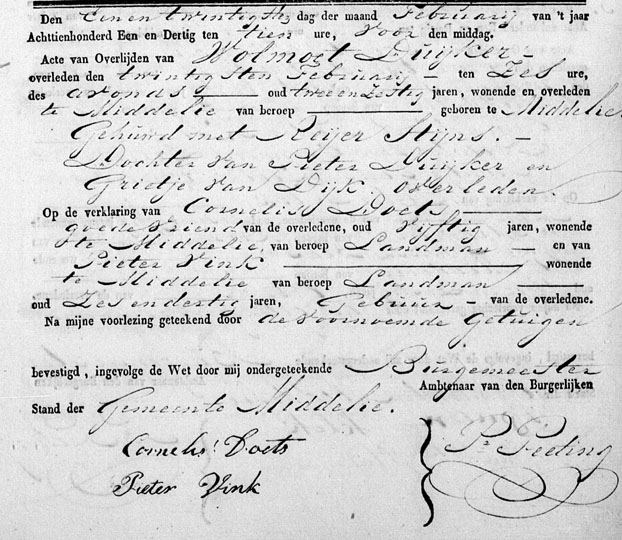 Den Eenentwintigste dag der maand Februarij van 't jaar
Achttienhonderd Een en Dertig ten tien ure, voor den middag.
Acte van Overlijden van Wolmoet Duijker
overleden den twintigsten Februarij – ten Zes ure,
des avonds oud tweeenzestig jaren, wonende en overleden
te Middelie van beroep geboren te Middelie
Gehuwd met Reijer Stijns. –
Dochter van Pieter Duijker en
Grietje van Dijk. overleden.
Op de verklaring van Cornelis Doets
goede vriend van de overledene, oud vijftig jaren, wonende
te Middelie, van beroep Landman – en van
Pieter Vink wonende
te Middelie van beroep Landman
oud Zes en dertig jaren, Gebuur – van de overledene.
Na mijne voorlezing geteekend door de voornoemde getuigen
bevestigd, ingevolge de Wet door mij ondergeteekende Burgemeester
Ambtenaar van den Burgerlijken
Stand der Gemeente Middelie.
Cornelis Doets
Pieter Vink
Pr Peeting